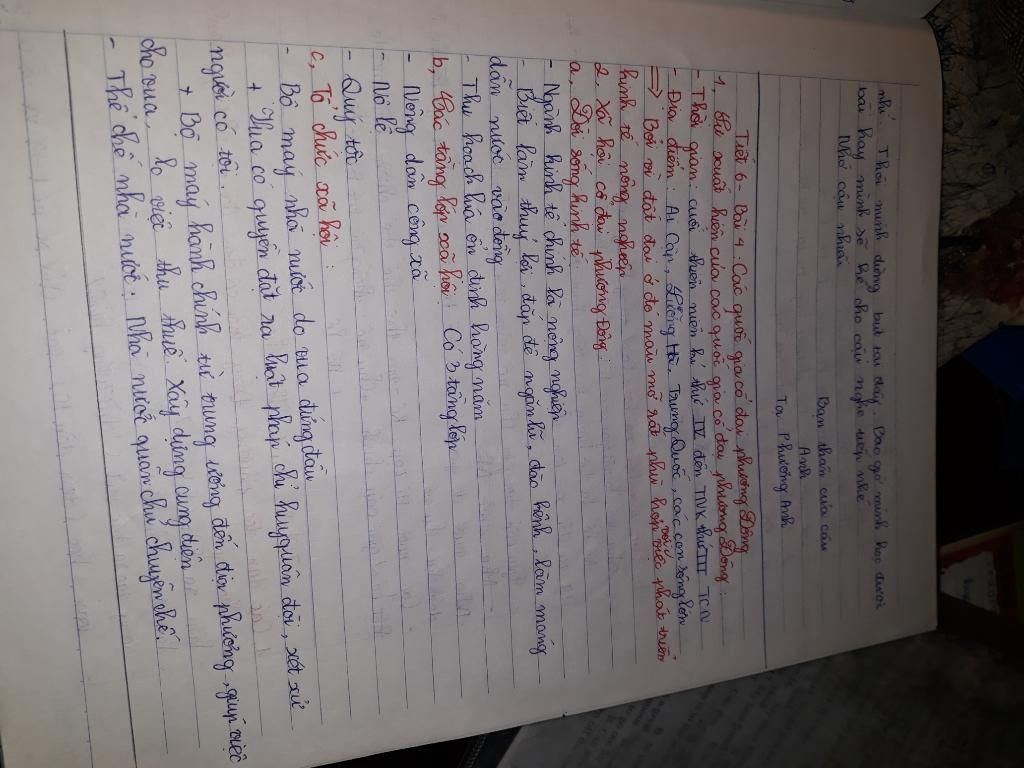 nhé. Thôi mình dừng bút tại đây. Bao giờ mình học được
bài hay mình sẽ kể cho cậu nghe tiếp nhé
Nhớ cậu nhiều
Bạn thân của cậu
Anh
Tạ Phương Anh
Tiết 6 - Bài 4: Các quốc gia cổ đại phương Đông
1. Sự xuất hiện của các quốc gia cổ đại phương Đông:
- Thời gian: cuối thiên niên kỉ thứ IV đến TNK thứ III TCN
- Địa điểm: Ai Cập, Lưỡng Hà, Trung Quốc, các con sông lớn
=> Bởi vì đất đai ở đó màu mỡ rất phù hợp với việc phát triển
kinh tế nông nghiệp
2. Xã hội cổ đại phương Đông:
a. Đời sống kinh tế
- Ngành kinh tế chính là nông nghiệp
- Biết làm thuỷ lợi, đắp đê ngăn lũ, đào kênh, làm máng
dẫn nước vào đồng
- Thu hoạch lúa ổn định hằng năm
b, Các tầng lớp xã hội: Có 3 tầng lớp
- Nông dân công xã
- Nô lệ
- Quý tộc
c, Tổ chức xã hội:
- Bộ máy nhà nước do vua đứng đầu
+ Vua có quyền đặt ra luật pháp chỉ huy quân đội, xét xử
người có tội.
+ Bộ máy hành chính từ trung ương đến địa phương, giúp việc
cho vua, lo việc thu thuế. Xây dựng cung điện
- Thể chế nhà nước: Nhà nước quân chủ chuyên chế.